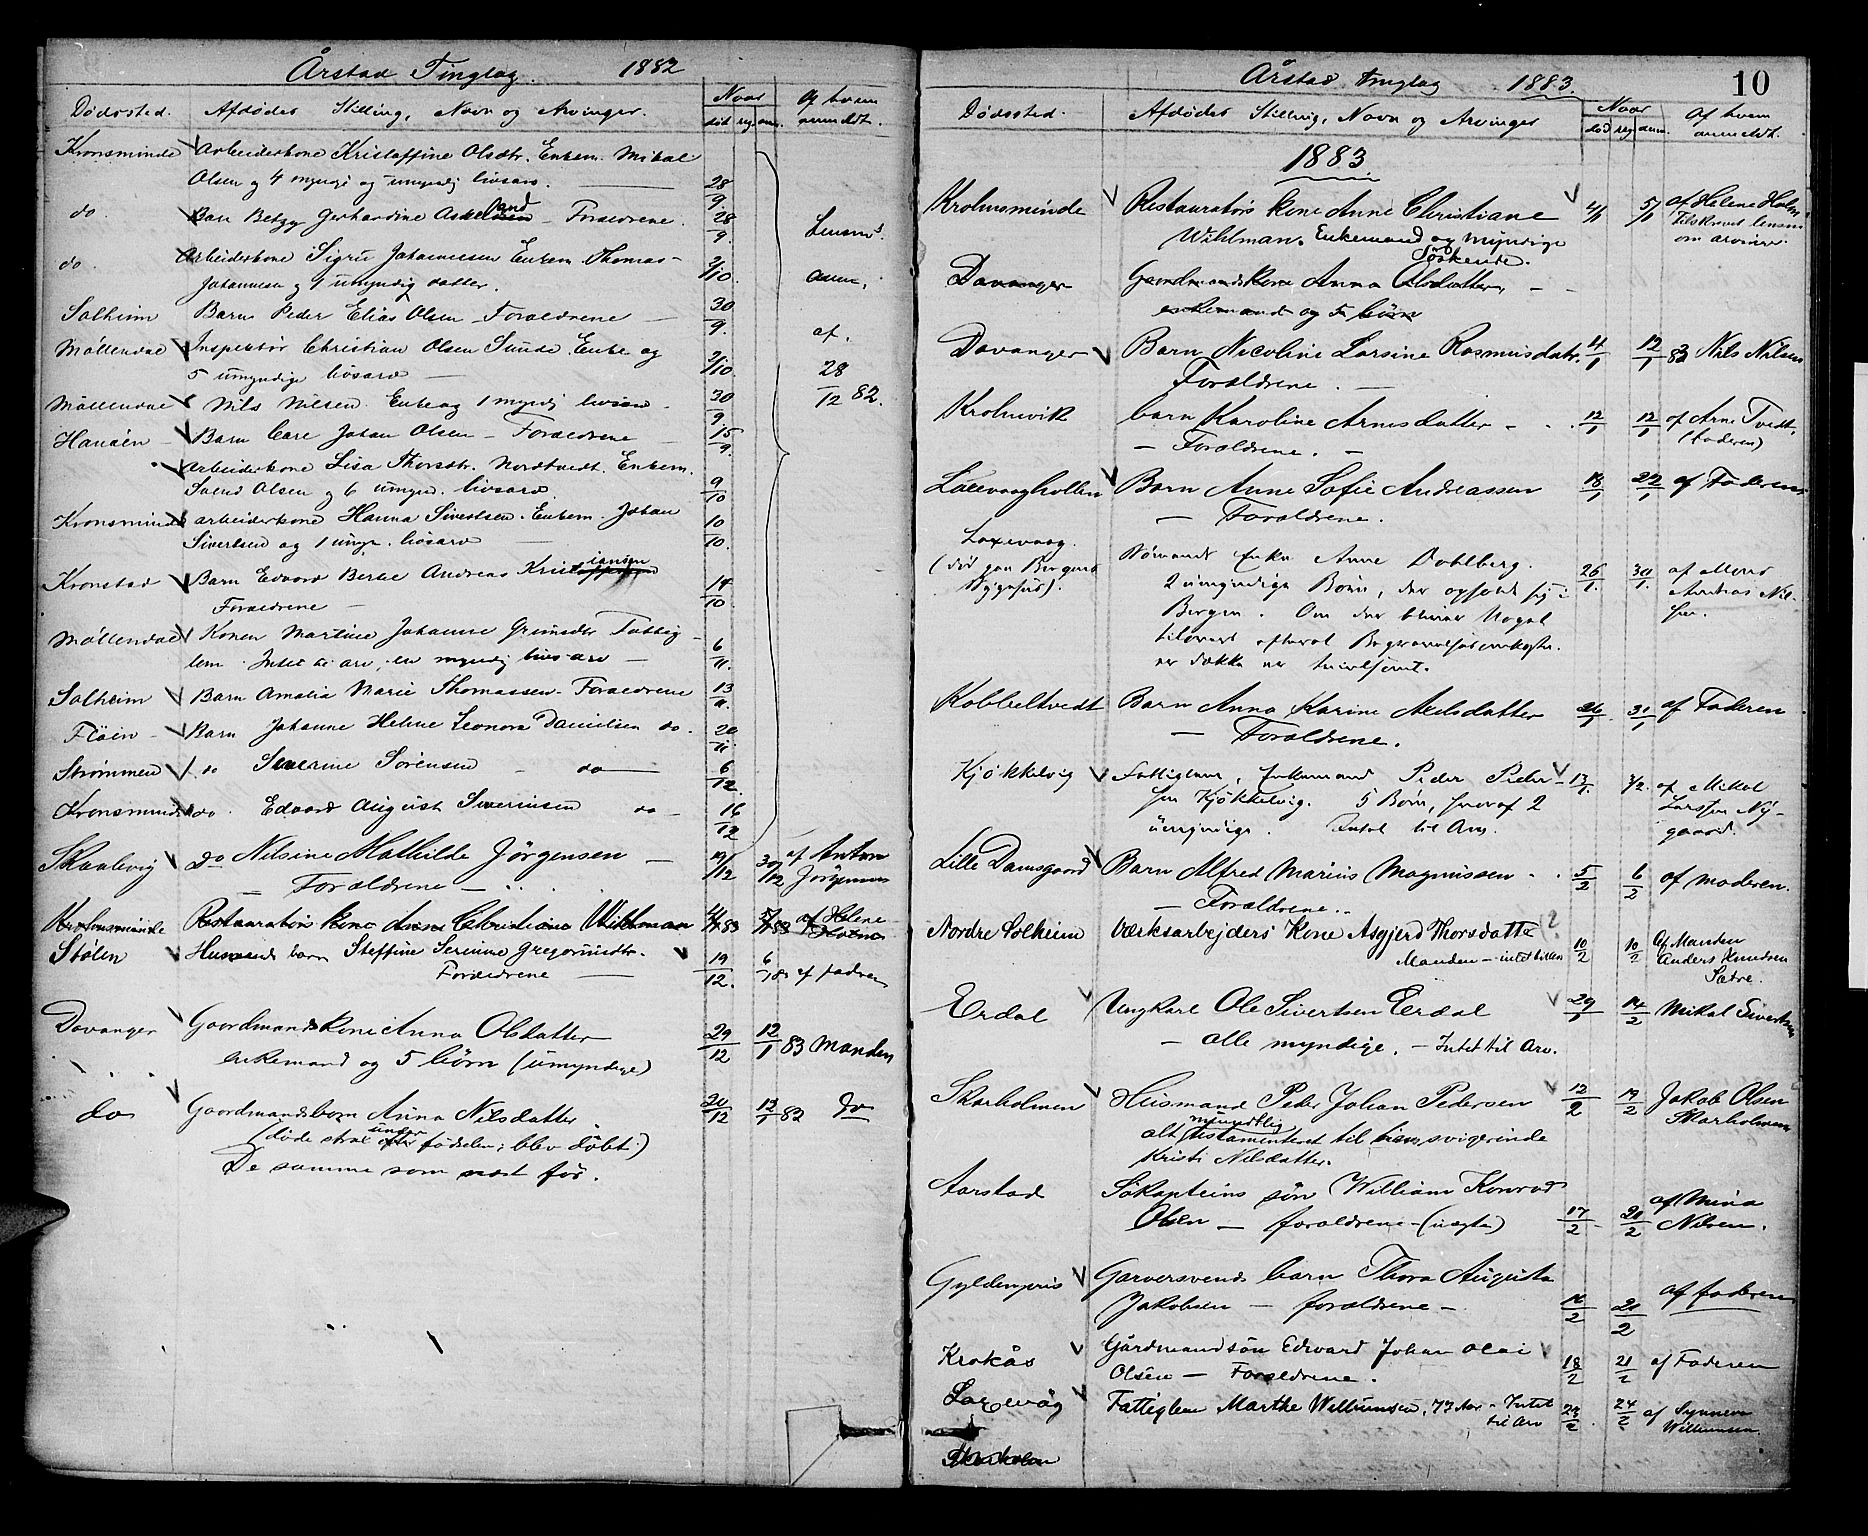 Årstad Tinglag 1882
Dødssted. Afdødes Stilling, Navn og Arvinger. Naar Af hvem
død reg. anm. anmeldt.
Kronsminde Arbeiderkone Kristoffine Olsdtr. Enkem. Mikal
Olsen og 4 myndige og umyndig livsarv. 28/9.
do. Barn Betzy Gerhardine Askeland Forældrene. 28/9. Lensm.
do. Arbeiderkone Sigri Johannessen Enkem. Thomas
Johannesen og 1 umyndig datter. 2/10. anm.
Solheim Barn Peder Elias Olsen Forældrene 30/9. af.
Møllendal Inspektør Christian Olsen Sunde. Enke og
5 umyndige livsarv 2/10. 28/12 82.
Møllendal Nils Nilsen. Enke og 1 myndig livsarv. 30/9
Hauåen Barn Carl Johan Olsen - Forældrene 15/9.
Arbeiderkone Lisa Thorsdtr. Nordtvedt. Enkem.
Svend Olsen og 6 umynd. livsarv. 9/10
Kronsminde arbeiderkone Hanna Sivertsen. Enkem. Johan
Sivertsen og 1 umyn. livsarv 10/10.
Kronstad Barn Edvard Bertel Andreas Kristiansen 14/10
Forældrene
Møllendal Konen Martine Johanne Grimsdtr Fattig
lem. Intet til arv, en myndig livsarv 6/11.
Solheim Barn Amalia Marie Thomassen - Forældrene 13/11.
Fløien Barn Johanne Helene Leonora Danielsen do. 20/11
Strømmen do Severine Sørensen do 6/12.
Kronsminde do. Edvard August Severinsen do 16/12
Skaalevig do Nilsine Mathilde Jørgensen 19/12 30/12 af Anton
Forældrene Jørgensen
Krohnsminde Restauratørs kone Anne Christiane Wihlman 4/1 83 5/1 83 af Helene
Holm
Stølen Husmands barn Steffine Serinne Gregoriusdtr. 19/12. 6/1 83 af fadren
Forældrene
Davanger Gaardmandskone Anna Olsdatter 29/12 12/1 83 Manden
enkemand og 5 börn (umyndige)
do Gaardmandsbarn Anna Nilsdatter 20/12 12/1 83 do
(døde strax under fødselen; blev døbt)
De samme som næst før.
Årstad tinglag 1883. 10
Dødssted. Afdødes Stilling, Navn og Arvinger Naar Af hvem
død reg. anm. anmeldt.
1883
Krohnsminde Restauratørs kone Anne Christiane 4/1 5/1 af Helene Holm
Wihlman. Enkemand og myndige Tilskrevet lensm
Søskende. om arvinger.
Davanger Gaardmandskone Anna Olsdatter
enkemand og 5 börn
Davanger Barn Nicoline Larsine Rasmusdatr. 4/1 12/1 83 Nils Nilsen
Forældrene.
Krohnvik barn Karoline Arnesdatter 12/1 12/1 af Arne Tvedt,
Forældrene. (faderen)
Laxevaagholten Barn Anne Sofie Andreassen 18/1 22/1 af Faderen
Forældrene.
Laxevaag. Sømands Enke Anne Dahlberg.
(død paa Bergens 2 umyndige Børn, der opholde sig i 26/1. 30/1. af
Sygehus). Bergen. Om der bliver Noget Andreas Nil-
tilovers efterat Begravelsesomkostn. sen.
er dække er tvivlsomt.
Kobbeltvedt Barn Anna Karine Axelsdatter 26/1 31/1 af Faderen
Forældrene.
Kjøkkelvig Fattiglem, Enkemand Peder Peder- 13/1. 3/2. af Mikal
sen Kjøkkelvig. 5 Børn, hvoraf 2 Larssen Ny-
umyndige. Intet til Arv. gaard.
Lille Damsgaard Barn Alfred Marius Magnussen 5/2 6/2 af moderen.
Forældrene.
Nordre Solheim Værksarbejders Kone Asgjerd Thorsdatte 10/2 10/2 Af Manden
Manden - intet til Arv Anders Knudsen
Sætre.
Erdal Ungkarl Ole Sivertsen Erdal 29/1 14/2 Mikal Sivertsen
alle myndige. - Intet til Arv.
Skarholmen Husmand Peder Johan Pedersen 12/2 19/2 Jakob Olsen
alt mundtlig testamenteret til hans svigerinde Skarholmen
Kristi Nilsdatter.
Aarstad Søkapteins søn William Konrad
Olsen - forældrene - (uægte) 17/2 20/2 af Mina
Nilsen.
Gyldenpris Garversvends barn Thora Augusta
Jakobsen - forældrene - 16/2 20/2 af faderen
Krokås Gårdmandsøn Edvard Johan Olai
Olsen - Forældrene. 18/2 21/2 af Faderen
Laxevåg Fattiglem Marthe Willumsen, 77 Aar - Intet 24/2 af Synneva
til Arv Willumsen.
Skarholm